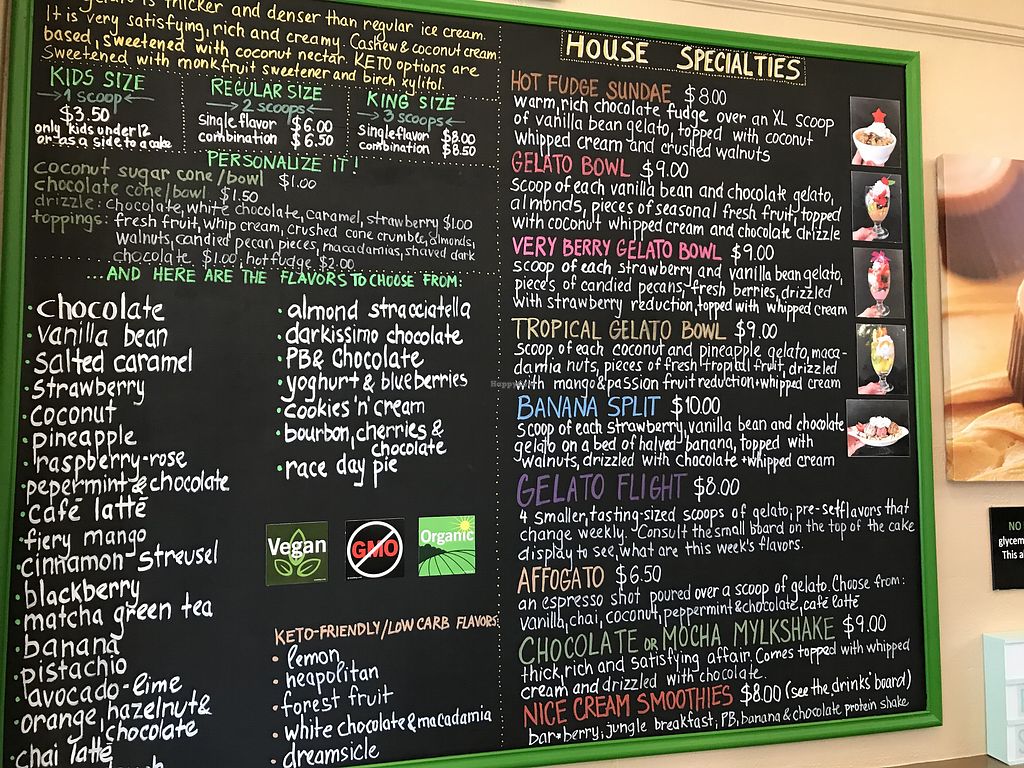 gelato is thicker and denser than regular ice cream.
It is very satisfying, rich and creamy. Cashew & coconut cream
based, sweetened with coconut nectar. KETO options are
Sweetened with monkfruit sweetener and birch xylitol.
KIDS SIZE
1 scoop
$3.50
only kids under 12
or as a side to a cake
REGULAR SIZE
2 scoops
single flavor $6.00
combination $6.50
KING SIZE
3 scoops
single flavor $8.00
combination $8.50
PERSONALIZE IT!
coconut sugar cone/bowl $1.00
chocolate cone/bowl $1.50
drizzle: chocolate, white chocolate, caramel, strawberry $1.00
toppings: fresh fruit, whip cream, crushed cone crumble, almonds,
walnuts, candied pecan pieces, macadamias, shaved dark
chocolate $1.00, hot fudge $2.00
...AND HERE ARE THE FLAVORS TO CHOOSE FROM:
·chocolate
·vanilla bean
·salted caramel
·strawberry
·coconut
·pineapple
·raspberry-rose
·pepermint & chocolate
·café latté
·fiery mango
·cinnamon streusel
·blackberry
·matcha green tea
·banana
·pistachio
·avocado-lime
·orange, hazelnut &
chocolate
·chai latté
·almond stracciatella
·darkissimo chocolate
·PB & chocolate
·yoghurt & blueberries
·cookies 'n' cream
·bourbon, cherries &
chocolate
·race day pie
Vegan
GMO
Organic
KETO-FRIENDLY/LOW CARB FLAVORS:
· lemon
· neapolitan
· forest fruit
· white chocolate & macadamia
· dreamsicle
HOUSE SPECIALTIES
HOT FUDGE SUNDAE $8.00
warm, rich chocolate fudge over an XL scoop
of vanilla bean gelato, topped with coconut
whipped cream and crushed walnuts
GELATO BOWL $9.00
scoop of each vanilla bean and chocolate gelato,
almonds, pieces of seasonal fresh fruit, topped
with coconut whipped cream and chocolate drizzle
VERY BERRY GELATO BOWL $9.00
scoop of each strawberry and vanilla bean gelato,
pieces of candied pecans, fresh berries, drizzled
with strawberry reduction, topped with whipped cream
TROPICAL GELATO BOWL $9.00
scoop of each coconut and pineapple gelato, maca-
damia nuts, pieces of fresh tropial fruit, drizzled
with mango & passion fruit reduction + whipped cream
BANANA SPLIT $10.00
scoop of each strawberry, vanilla bean and chocolate
gelato on a bed of halved banana, topped with
walnuts, drizzled with chocolate + whipped cream
GELATO FLIGHT $8.00
4 smaller, tasting-sized scoops of gelato, pre-set flavors that
change weekly. Consult the small board on the top of the cake
display to see, what are this week's flavors.
AFFOGATO $6.50
an espresso shot poured over a scoop of gelato. Choose from:
vanilla, chai, coconut, peppermint & chocolate, café latté
CHOCOLATE OR MOCHA MYLKSHAKE $9.00
thick, rich and satisfying affair. Comes topped with whipped
cream and drizzled with chocolate.
NICE CREAM SMOOTHIES $8.00 (see the drinks' board)
bar*berry, jungle breakfast, PB, banana & chocolate protein shake
NO
glycem
This a